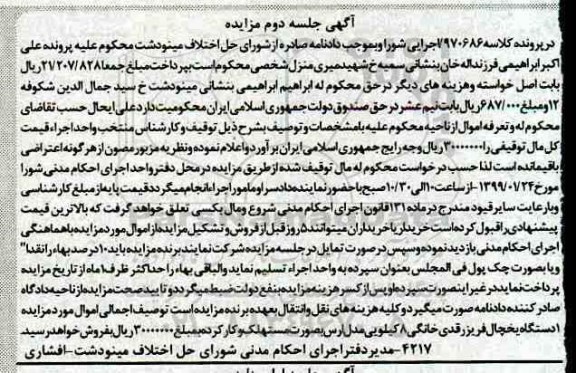 آگهی جلسه دوم مزایده
در پرونده کلاسه ۹۷۰۶۸۶/اجرایی شورا و بموجب دادنامه صادره از شورای حل اختلاف مینودشت محکوم علیه پرونده علی
اکبر ابراهیمی فرزند اله خان بنشانی سمیه خ شهید میری منزل شخصی محکوم است بپرداخت مبلغ جمعا ۲۱/۲۰۷/۸۲۸ ریال
بابت اصل خواسته و هزینه های دیگر در حق محکوم له ابراهیم ابراهیمی بنشانی مینودشت خ سید جمال الدین شکوفه
۱۲ و مبلغ ۶۸۷/۰۰۰ ریال بابت نیم عشر در حق صندوق دولت جمهوری اسلامی ایران محکومیت دارد علی ایحال حسب تقاضای
محکوم له و تعرفه اموال از ناحیه محکوم علیه بامشخصات و توصیف بشرح ذیل توقیف و کارشناس منتخب واحد اجراء قیمت
کل مال توقیفی را ۳۰۰۰۰۰۰ ریال وجه رایج جمهوری اسلامی ایران برآورد و اعلام نموده و نظریه مزبور مصون از هرگونه اعتراضی
باقیمانده است لذا حسب درخواست محکوم له مال توقیف شده از طریق مزایده در محل دفتر واحد اجرای احکام مدنی شورا
مورخ ۱۳۹۹/۰۱/۲۴ - از ساعت ۱۰ الی ۱۰/۳۰ صبح با حضور نماینده دادسرا و مامور اجرا انجام میگردد قیمت پایه از مبلغ کارشناسی
و با رعایت سایر قیود مندرج در ماده ۱۳۱ قانون اجرای احکام مدنی شروع و مال بکسی تعلق خواهد گرفت که بالاترین قیمت
پیشنهادی را قبول کرده است خریدار یا خریداران میتوانند ۵ روز قبل از فروش و تشکیل مزایده از اموال مورد مزایده با هماهنگی
اجرای احکام مدنی بازدید نموده و سپس در صورت تمایل در جلسه مزایده شرکت نمایند برنده مزایده باید ۱۰ درصد بهاء را نقدا"
و یا بصورت چک پول فی المجلس بعنوان سپرده به واحد اجراء تسلیم نماید و الباقی بهاء را حداکثر ظرف ۱ ماه از تاریخ مزایده
پرداخت نماید در غیر اینصورت سپرده او پس از کسر هزینه مزایده بنفع دولت ضبط میگردد و تایید صحت مزایده از ناحیه دادگاه
صادرکننده دادنامه صورت میگیرد و کلیه هزینه های نقل و انتقال بعهده برنده مزایده است توصیف اجمالی اموال مورد مزایده
۱ دستگاه یخچال فریزر قدی خانگی ۸ کیلویی مدل ارس بصورت مستهلک و کارکرده بمبلغ ۳۰۰۰۰۰۰ ریال بفروش خواهد رسید.
۴۲۱۷-مدیر دفتر اجرای احکام مدنی شورای حل اختلاف مینودشت-افشاری